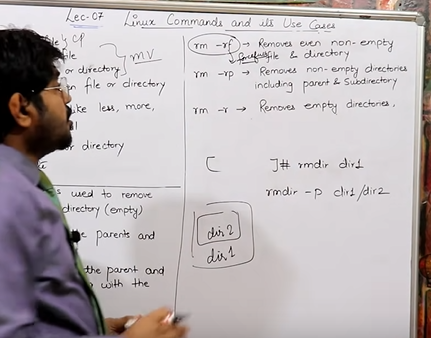 Lec-07 Linux Commands and its Use Cases
file & CP
file
MV
or directory
file or directory
like less, more,
or directory
used to remove
directory (empty)
the parents and
the parent and
with the
rm -rf → Removes even non-empty
file & directory
rm -rp → Removes non-empty directories
including parent & Subdirectory
rm -r → Removes empty directories,
[ ]# rmdir dir1
rmdir -p dir1/dir2
dir2
dir1